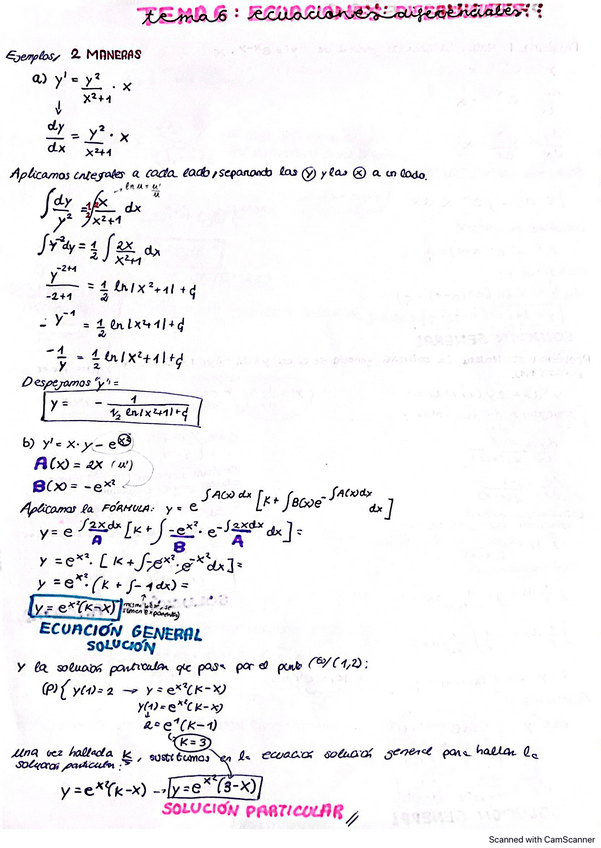 tema 6: ecuaciones diferenciales:
Ejemplos, 2 MANERAS
a) y' = y²/(x²+1) · x
↓
dy/dx = y²/(x²+1) · x
Aplicamos integrales a cada lado, separando las (y) y las (x) a un lado.
ln u = u'/u
∫ dy/y² = 1/2 ∫ x/(x²+1) dx
∫ y⁻² dy = 1/2 ∫ 2x/(x²+1) dx
y⁻²⁺¹/(-2+1) = 1/2 ln|x²+1| + C
- y⁻¹ = 1/2 ln|x²+1| + C
-1/y = 1/2 ln|x²+1| + C
Despejamos "y" =
y = - 1/(1/2 ln|x²+1| + C)
b) y' = x · y - e^x²
A(x) = 2x (u')
B(x) = -e^x²
Aplicamos la FÓRMULA: y = e^∫A(x)dx [K + ∫B(x)e^-∫A(x)dx dx]
y = e^∫2xdx [K + ∫-e^x² · e^-∫2xdx dx] =
A B A
y = e^x² · [K + ∫-e^x² · e^-x² dx] =
y = e^x² · (K + ∫-1dx) =
y = e^x²(K-x)
ECUACIÓN GENERAL
SOLUCIÓN
Y la solución particular que pasa por el punto (1,2):
(P) { y(1)=2 → y = e^x²(K-x)
y(1) = e^x²(K-x)
↓
2 = e¹(K-1)
K=3
Una vez hallada K, sustituimos en la ecuación solución general para hallar la
solución particular:
y = e^x²(K-x) → y = e^x²(3-x)
SOLUCIÓN PARTICULAR //
Scanned with CamScanner